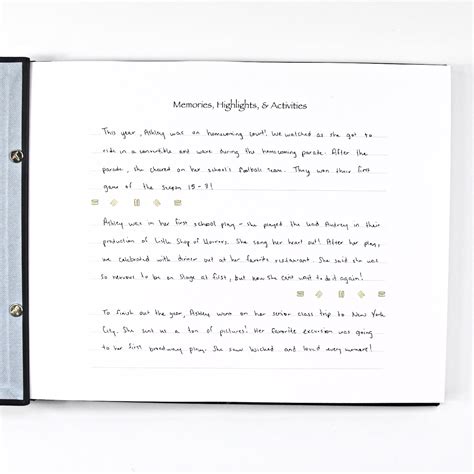 Memories, Highlights, & Activities
This year, Ashley was on homecoming court! We watched as she got to
ride in a convertible and wave during the homecoming parade. After the
parade, she cheered on her school's football team. They won their first
game of the season 15-8!
Ashley was in her first school play - she played the lead Audrey in their
production of Little Shop of Horrors. She sang her heart out! After her play,
we celebrated with dinner out at her favorite restaurant. She said she was
so nervous to be on stage at first, but now she can't wait to do it again!
To finish out the year, Ashley went on her senior class trip to New York
City. She sent us a ton of pictures! Her favorite excursion was going
to her first broadway play. She saw Wicked and loved every moment!